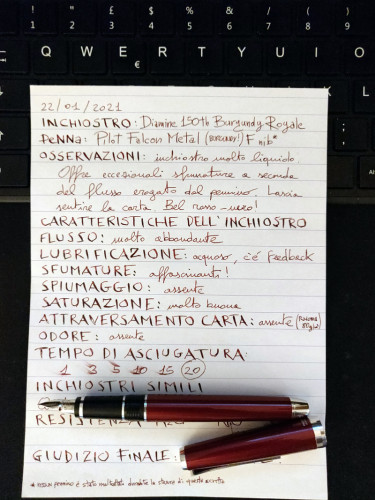 ! " £ $ % & / ( )
1 2 3 4 5 6 7 8 9
Q W E R T Y U I O
€
22/01/2021
INCHIOSTRO: Diamine 150th Burgundy Royale
PENNA: Pilot Falcon Metal F nib*
OSSERVAZIONI: inchiostro molto liquido.
Offre eccezionali sfumature a seconda
del flusso erogato dal pennino. Lascia
sentire la carta Bel rosso-nero!
CARATTERISTICHE DELL'INCHIOSTRO
FLUSSO: molto abbondante
LUBRIFICAZIONE: acquoso, c'è feedback
SFUMATURE: affascinanti!
SPIUMAGGIO: assente
SATURAZIONE: molto buona
ATTRAVERSAMENTO CARTA: assente
ODORE: assente
TEMPO DI ASCIUGATURA:
1 3 5 10 15 20
INCHIOSTRI SIMILI
RESISTENZA H2O
GIUDIZIO FINALE:
* nessun pennino è stato maltrattato durante la stesura di questa scritta